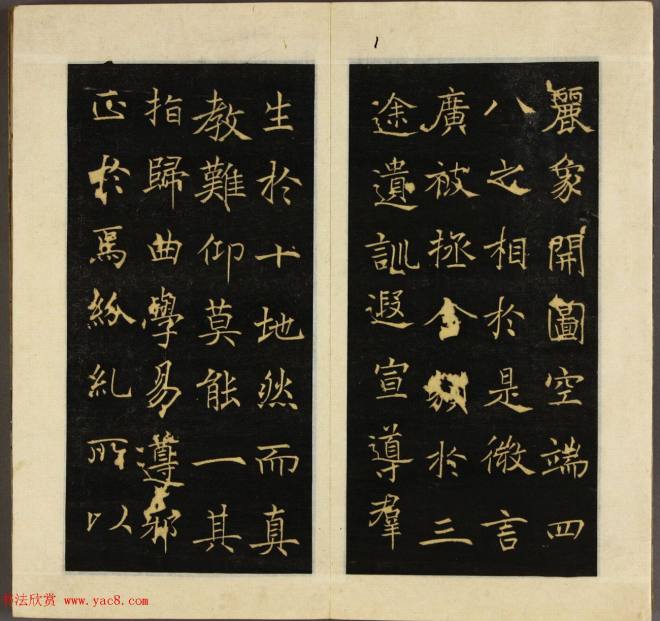 麗象開圖空端四
八之相於是微言
廣被拯含類於三
途遺訓遐宣導羣
生於十地然而真
教難仰莫能一其
指歸曲學易遵邪
正於焉紛糺所以
书法欣赏 www.yac8.com